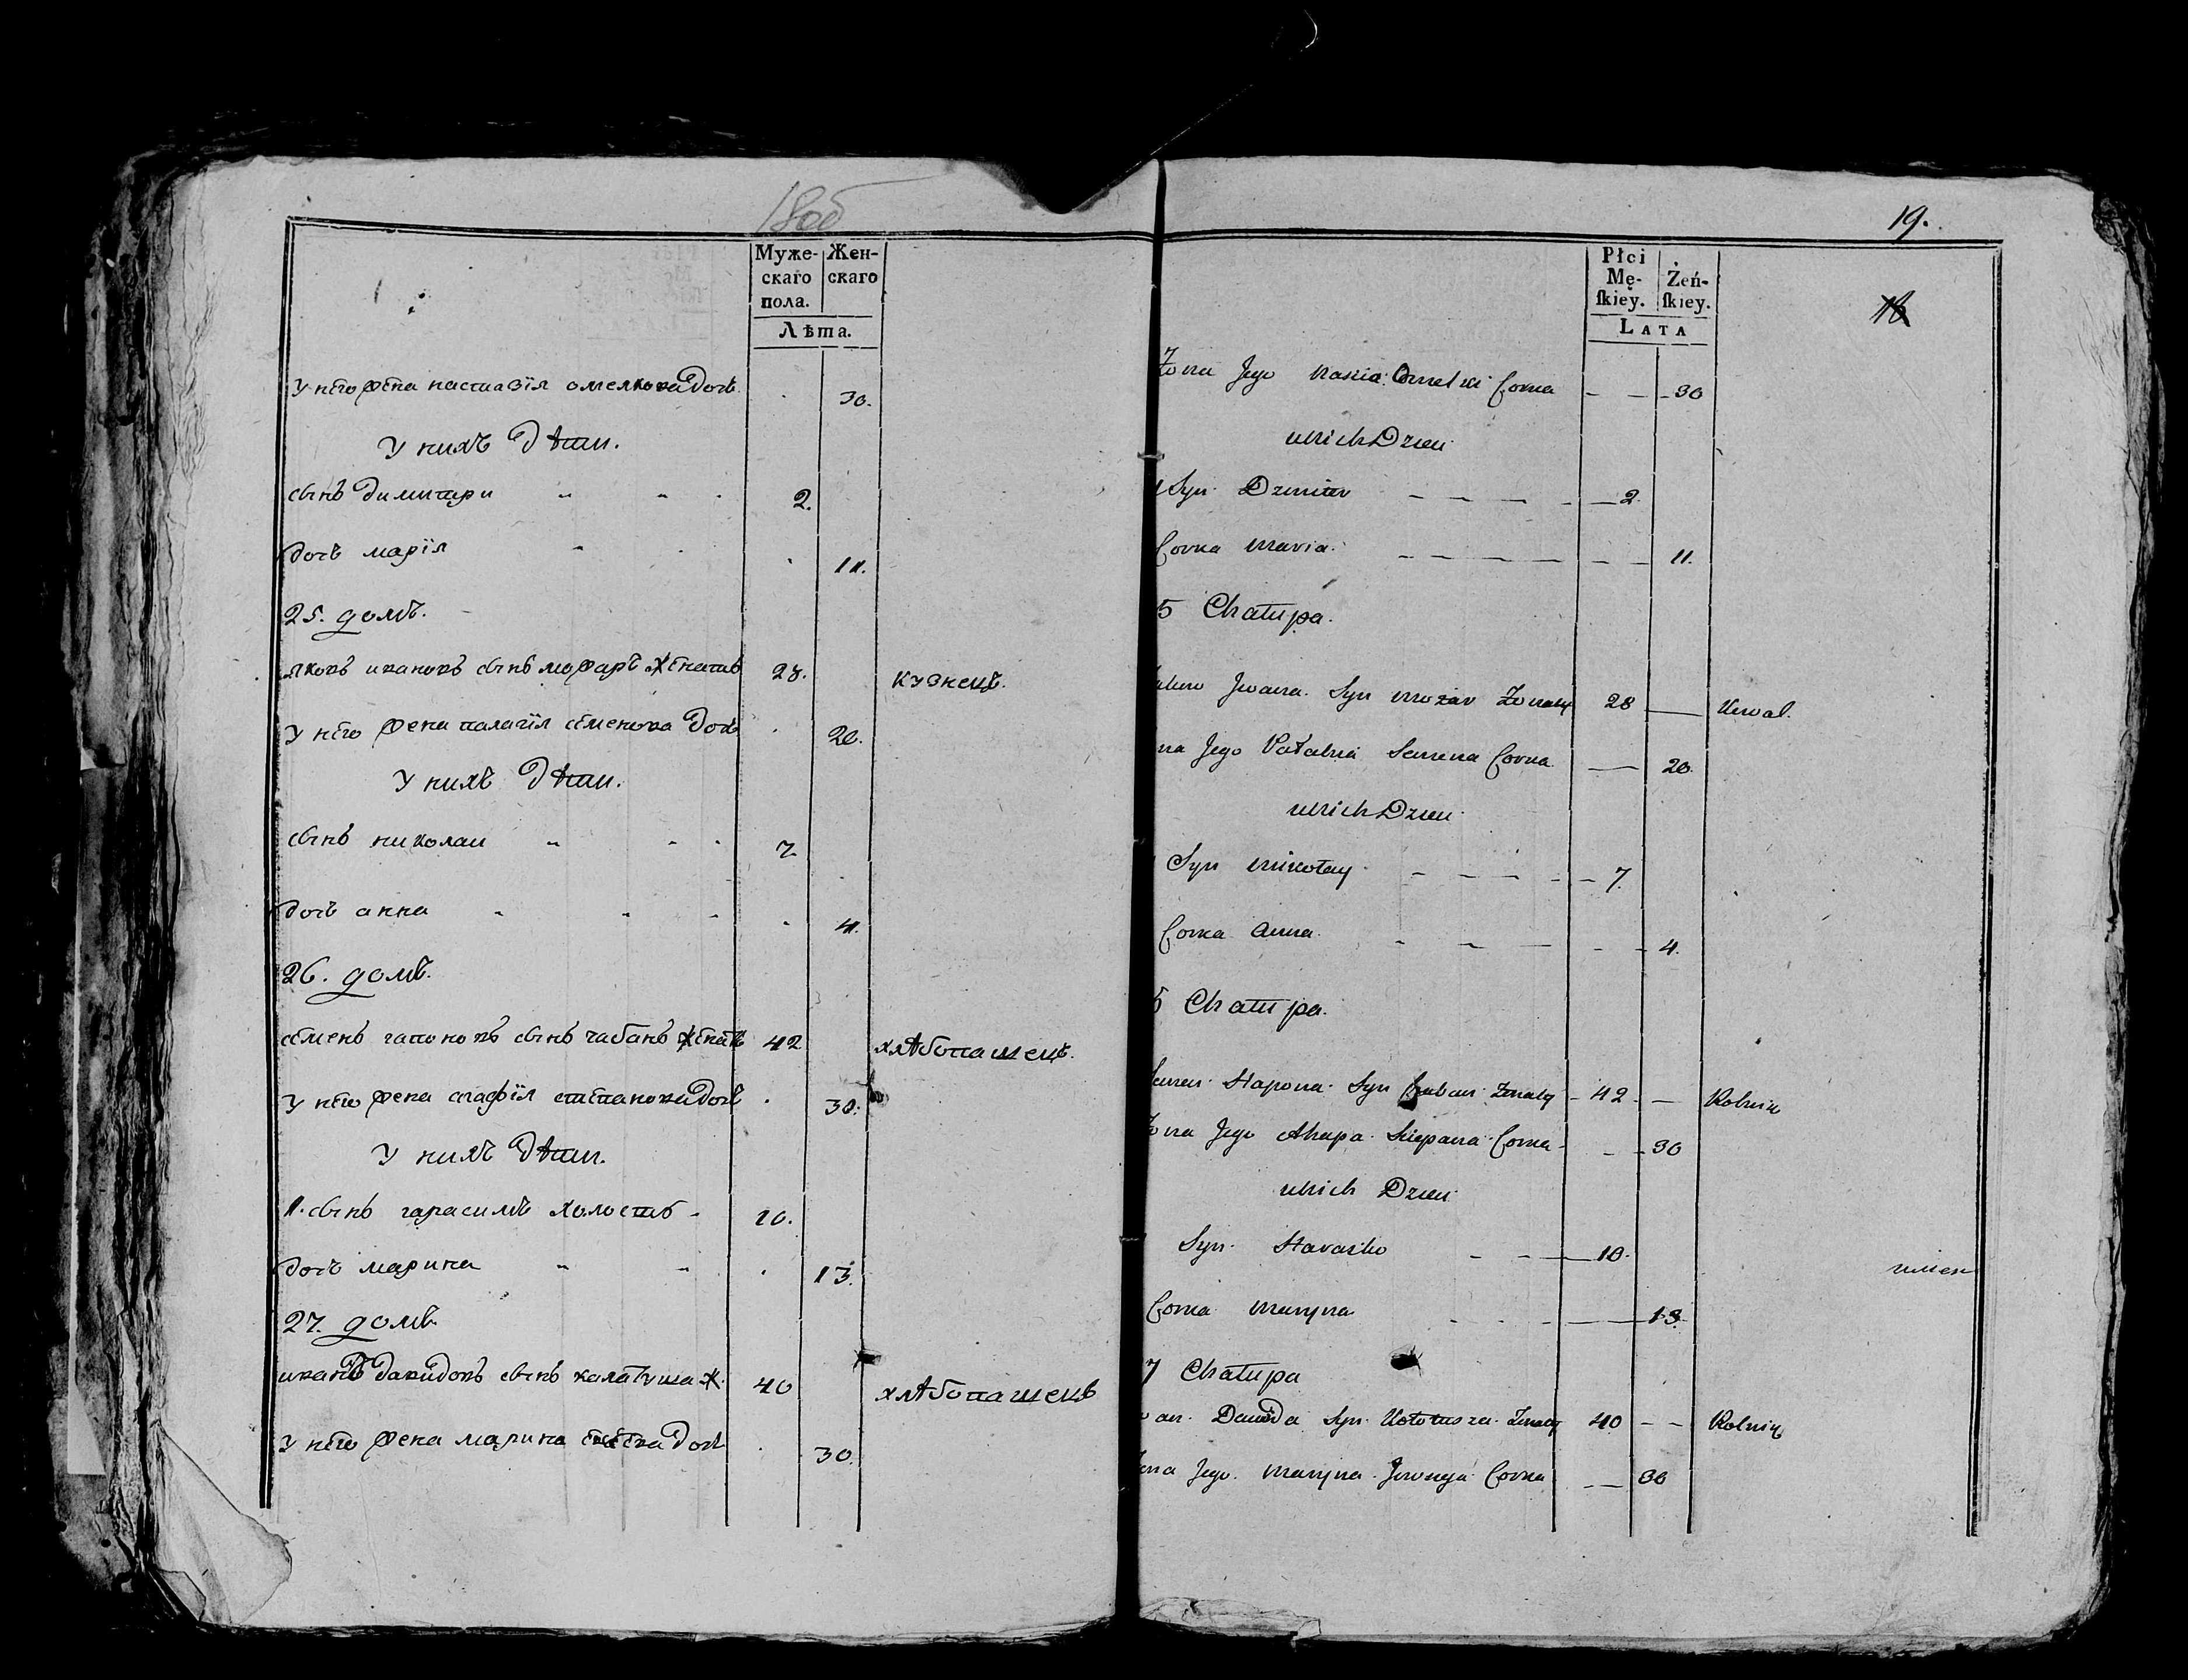 18об
Муже-
скаго
пола.
Жен-
скаго
Лѣта.
у него жена настазїя омелкова дочь 30.
у нихъ дѣти.
сынъ димитри 2.
дочь марїя 11.
25. домъ.
яковъ ивановъ сынъ мажаръ женатъ 28. кузнецъ.
у него жена палагїя семенова дочь 20.
у нихъ дѣти.
сынъ николаи 7
дочь анна 4.
26. домъ.
семенъ гапоновъ сынъ чабанъ женатъ 42 хлѣбопашецъ.
у него жена агафїя степанова дочь 30.
у нихъ дѣти.
1. сынъ гарасимъ холостъ 10.
дочь марина 13.
27. домъ
иванъ давидовъ сынъ калатуша ж. 40 хлѣбопашецъ
у него жена марина дочь 30.
19.
18
Płci
Mę-
ſkiey.
Żeń-
ſkiey.
LATA
Zona Jego Nascia Omelki Corka 30
u Nich Dzieci
1 Syn Dzmiter 2.
Corka Maria. 11.
5 Chałupa.
Jwana Syn Mozar Zonaty 28 Kowal.
na Jego Pałahia Semena Corka 20.
u Nich Dzieci
Syn Mikołay 7.
Corka Anna 4.
6 Chałupa.
Semen Hapona Syn Czaban Zonaty 42 Rolnik
Zona Jego Ahapa Sciepana Corka 30
u Nich Dzieci
Syn Harasko 10.
Corka Maryna 13.
7 Chałupa
Dawida Syn Kołotusza Zonaty 40 Rolnik
Zona Jego Maryna Corka 30